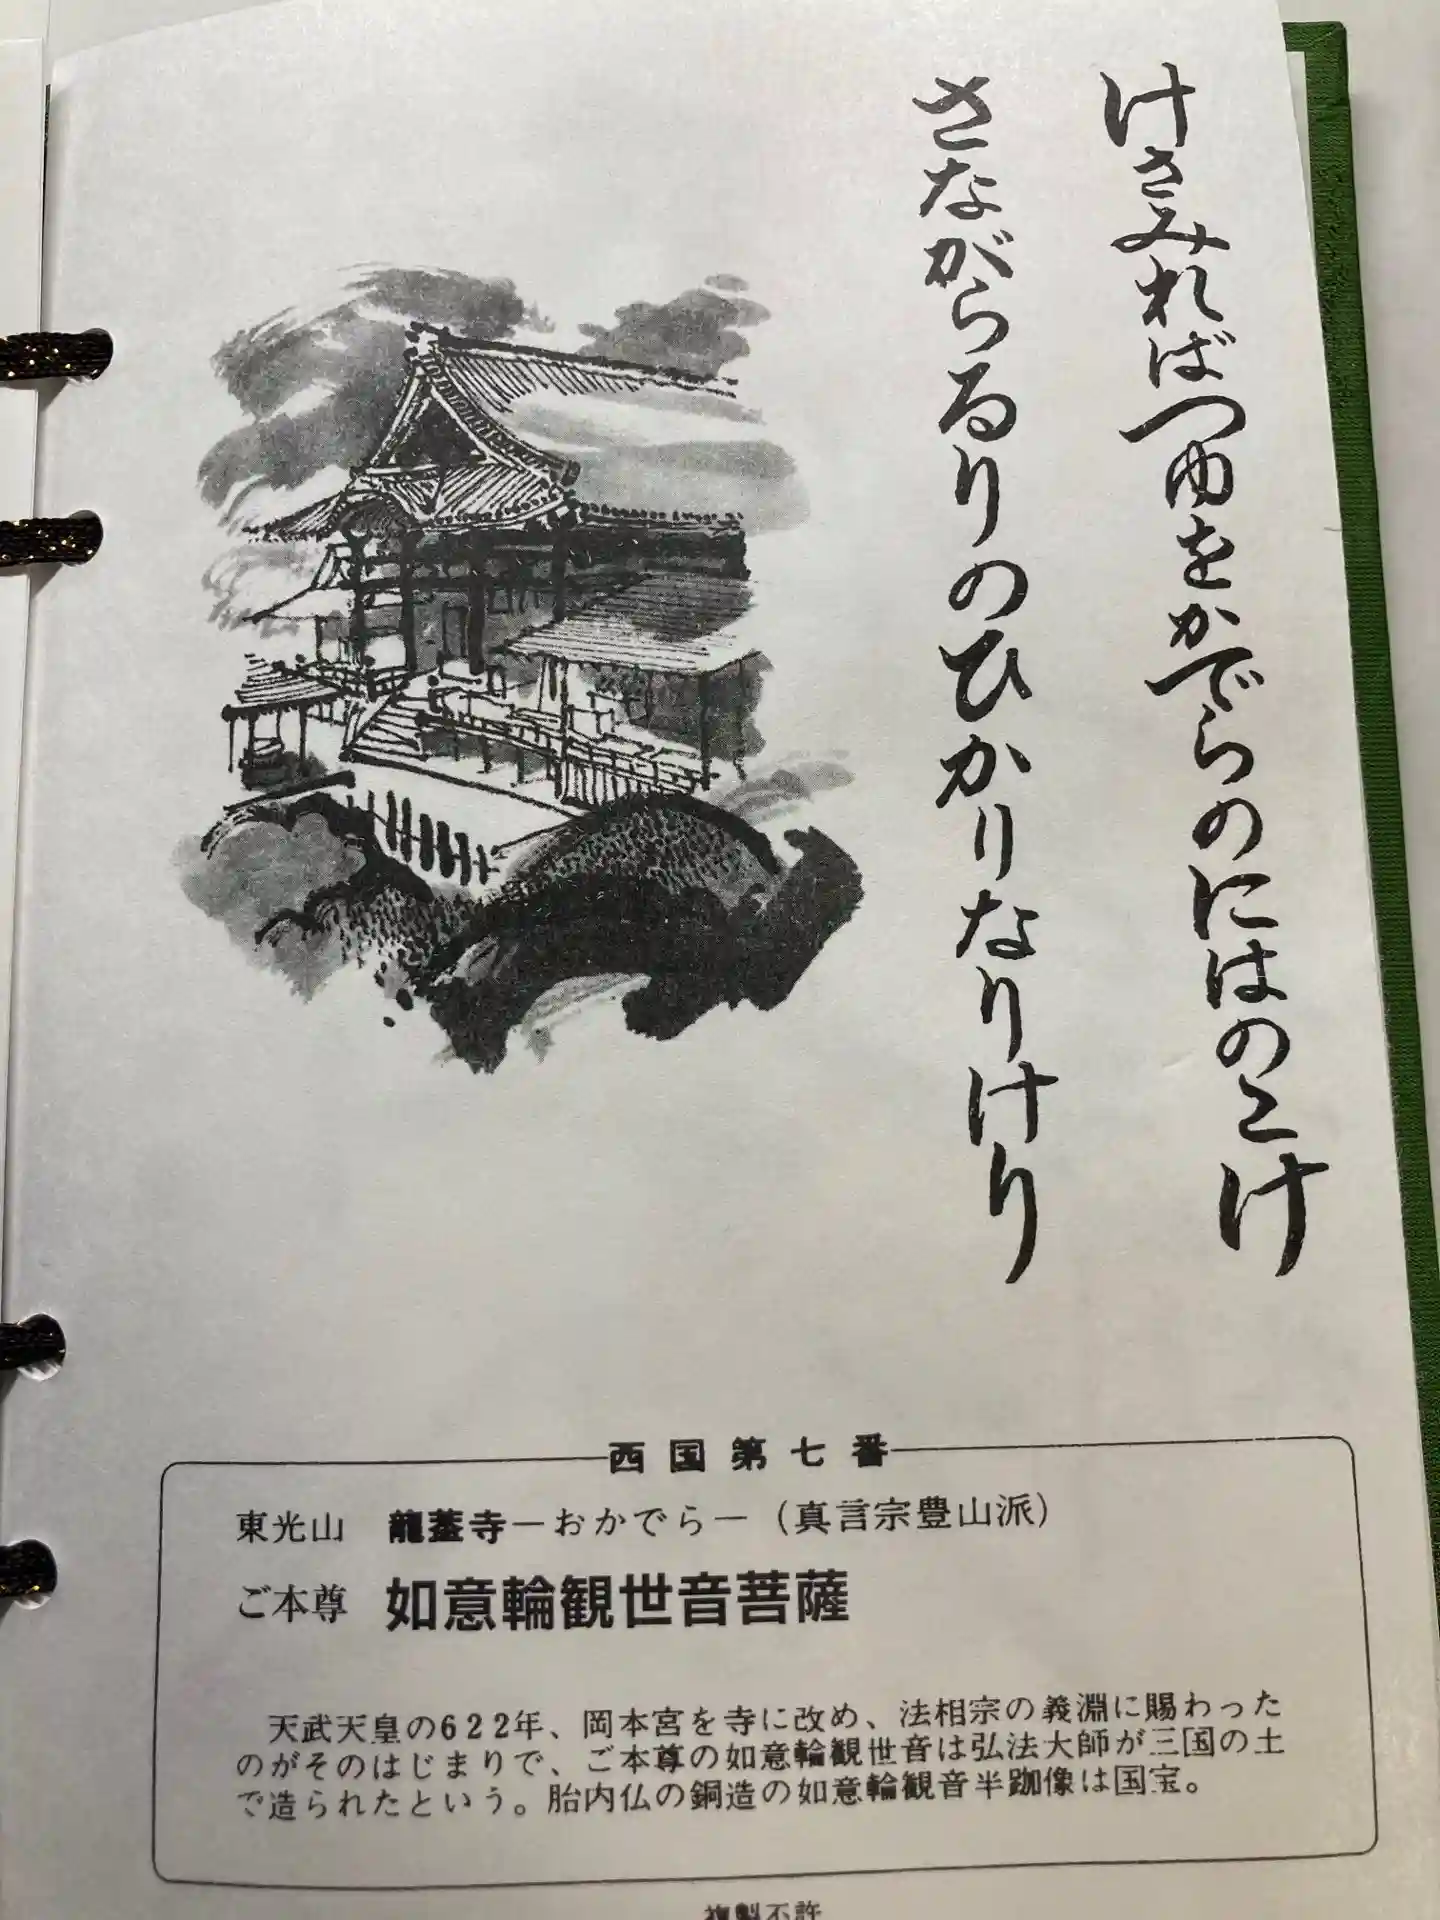 けさみればつゆをかでらのにはのこけ
さながらるりのひかりなりけり
西国第七番
東光山 龍蓋寺―おかでら―(真言宗豊山派)
ご本尊 如意輪観世音菩薩
天武天皇の622年、岡本宮を寺に改め、法相宗の義淵に賜わった
のがそのはじまりで、ご本尊の如意輪観世音は弘法大師が三国の土
で造られたという。胎内仏の銅造の如意輪観音半跏像は国宝。
複製不許